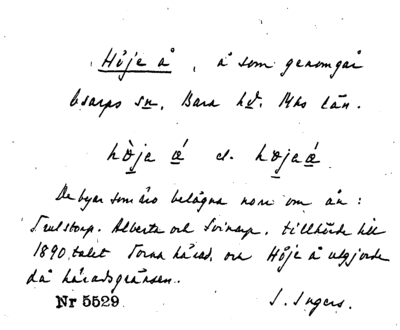 Höje å, å som genomgår
Esarps sn, Bara hd. Mhs län.
hòja ǽ el. højaǽ
De byar som äro belägna norr om ån:
Trulstorp, Alberta och Svinarp, tillhörde till
1890 talet Torna härad, och Höje å utgjorde
då häradsgränsen.
Nr 5529. I. Ingers.